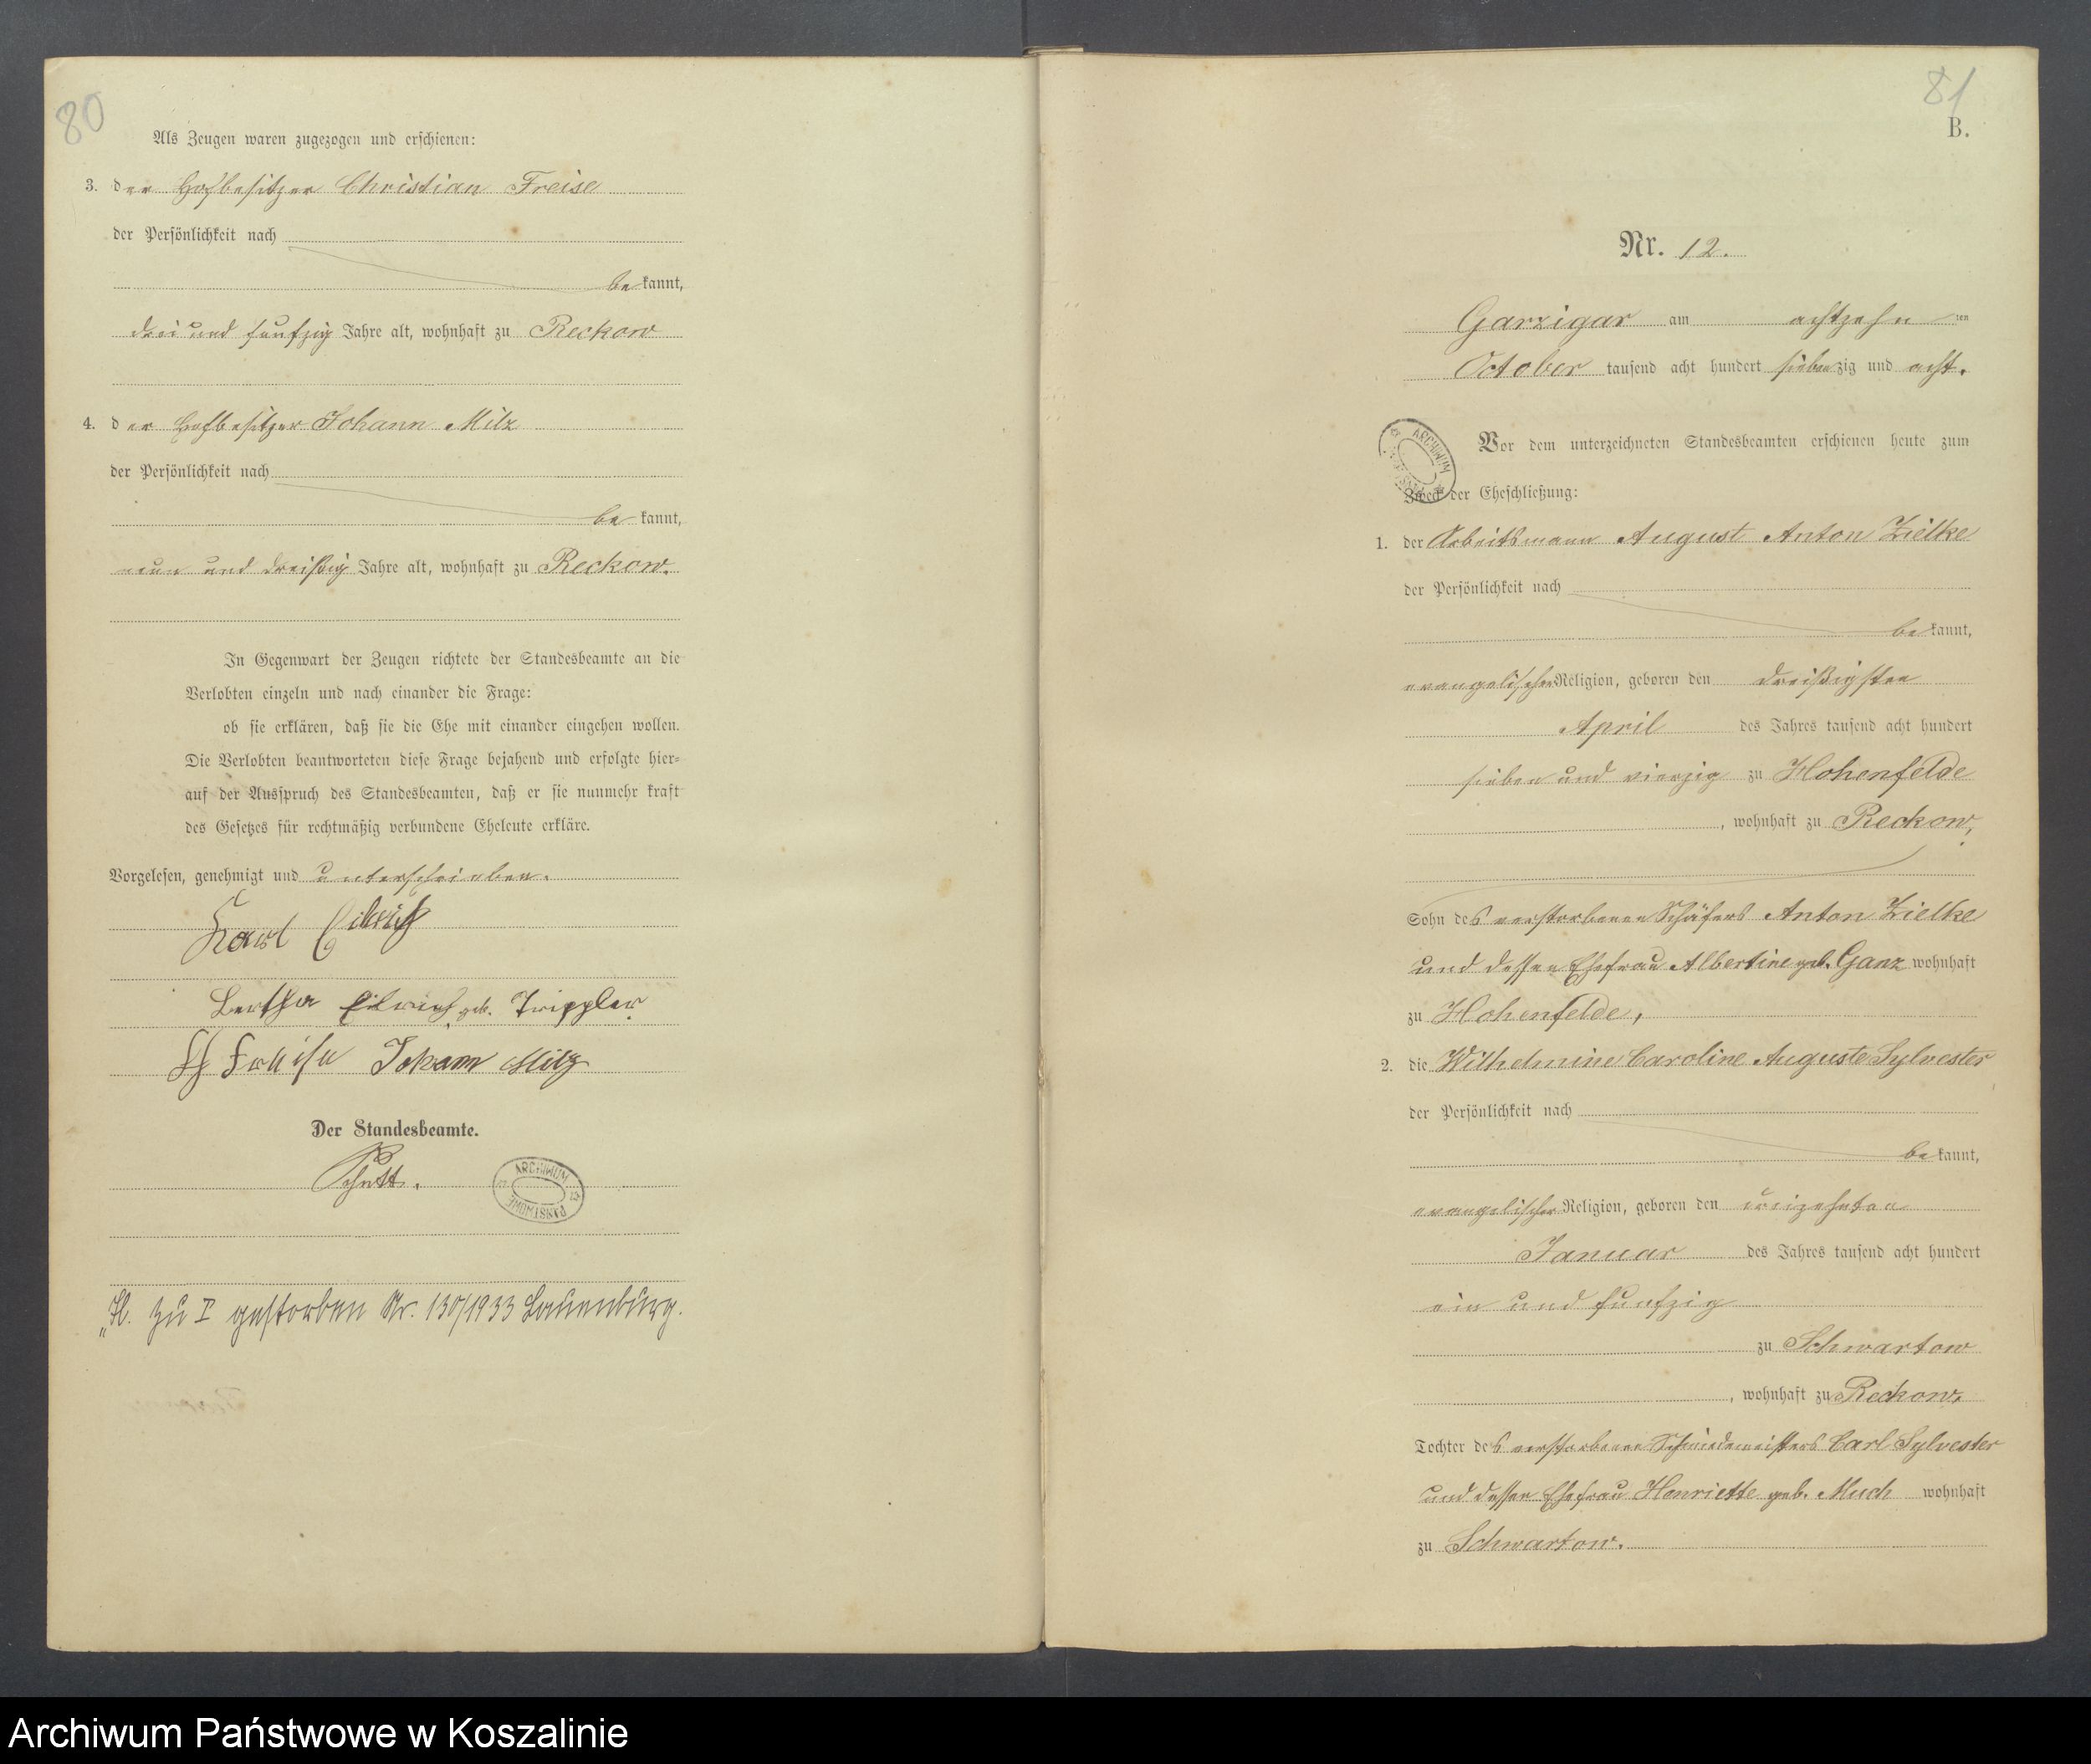 80
Als Zeugen waren zugezogen und erschienen:
3. der Hofbesitzer Christian Freise
der Persönlichkeit nach
bekannt,
drei und funfzig Jahre alt, wohnhaft zu Reckow
4. der Hofbesitzer Johann Milz
der Persönlichkeit nach
bekannt,
neun und dreißig Jahre alt, wohnhaft zu Reckow.
In Gegenwart der Zeugen richtete der Standesbeamte an die
Verlobten einzeln und nach einander die Frage:
ob sie erklären, daß sie die Ehe mit einander eingehen wollen.
Die Verlobten beantworteten diese Frage bejahend und erfolgte hier-
auf der Ausspruch des Standesbeamten, daß er sie nunmehr kraft
des Gesetzes für rechtmäßig verbundene Eheleute erkläre.
Vorgelesen, genehmigt und unterschrieben.
Karl
Bertha geb. Trippler.
Freise Johann Milz
Der Standesbeamte.
ARCHIWUM PAŃSTWOWE
zu I gestorben Nr. 130/1933 Lauenburg.
81
B.
Nr. 12.
Garzigar am achtzehnten
October tausend acht hundert siebenzig und acht.
Vor dem unterzeichneten Standesbeamten erschienen heute zum
Zweck der Eheschließung:
ARCHIWUM
1. der Arbeitsmann August Anton Zielke
der Persönlichkeit nach
bekannt,
evangelischer Religion, geboren den dreißigsten
April des Jahres tausend acht hundert
sieben und vierzig zu Hohenfelde
, wohnhaft zu Reckow,
Sohn des verstorbenen Schäfers Anton Zielke
und dessen Ehefrau Albertine geb. Ganz wohnhaft
zu Hohenfelde,
2. die Wilhelmine Caroline Auguste Sylvester
der Persönlichkeit nach
bekannt,
evangelischer Religion, geboren den dreizehnten
Januar des Jahres tausend acht hundert
ein und funfzig
zu Schwartow
, wohnhaft zu Reckow,
Tochter des verstorbenen Schmiedemeisters Carl Sylvester
und dessen Ehefrau Henriette geb. Much wohnhaft
zu Schwartow.
Archiwum Państwowe w Koszalinie